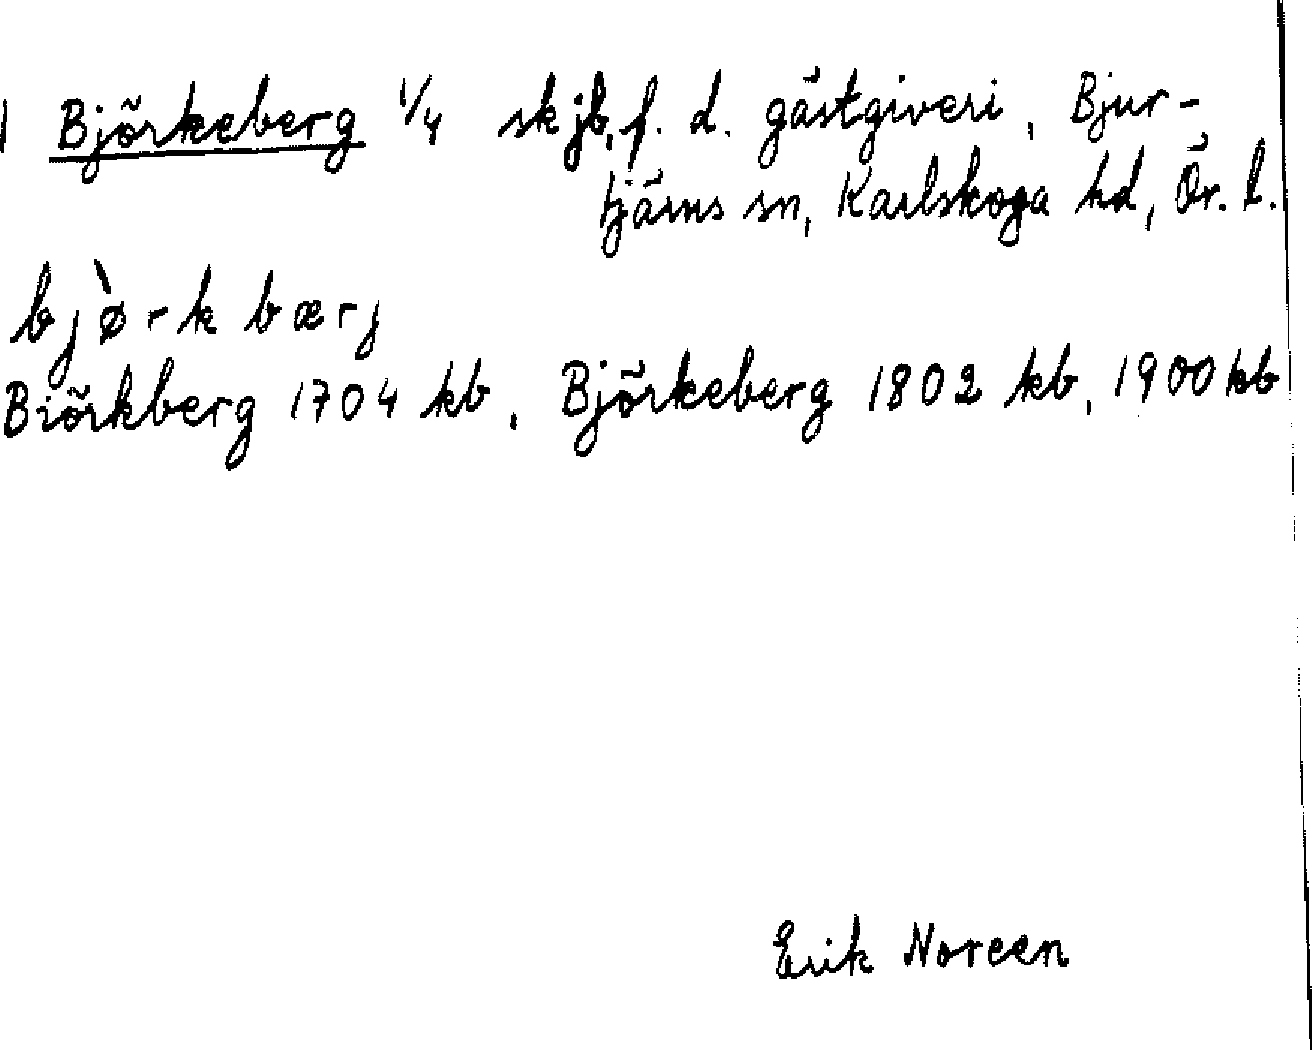 Björkeberg 1/4 skjb, f. d. gästgiveri, Bjur-
tjärns sn, Karlskoga hd, Ör. l.
bjø̀rkbærj
Biörkberg 1704 kb, Björkeberg 1802 kb, 1900 kb
Erik Noreen